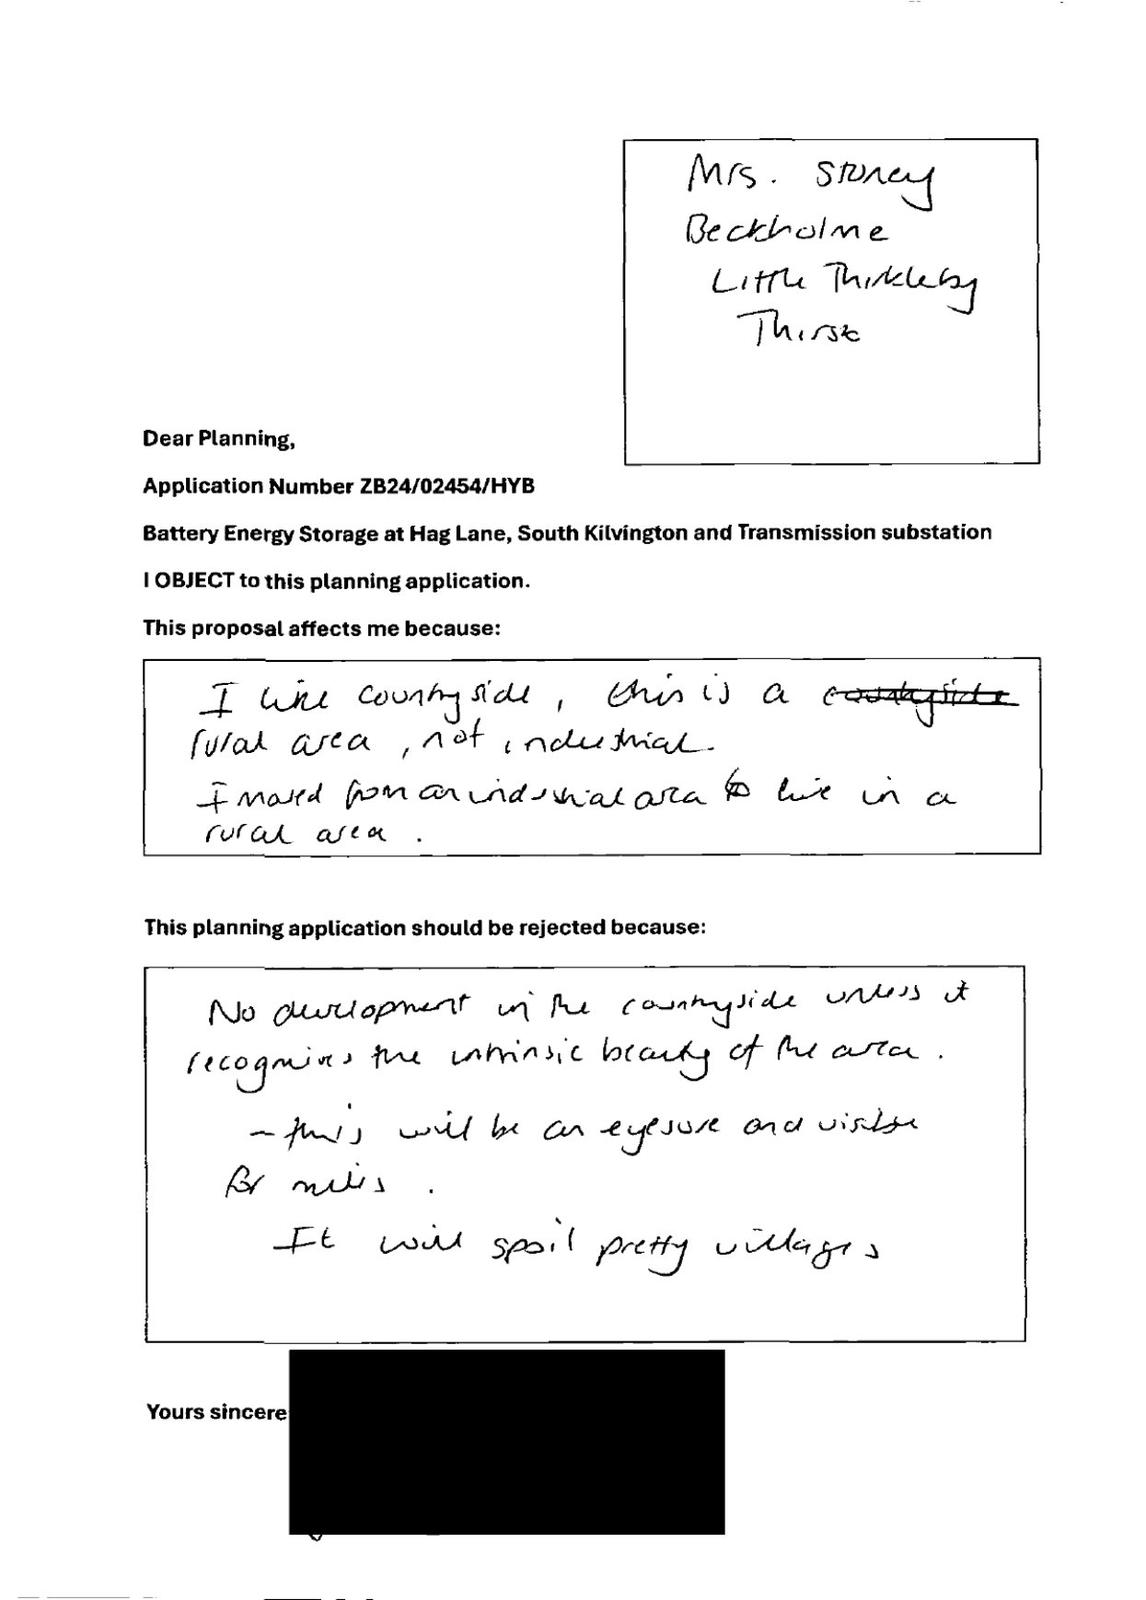 Mrs. Storey
Beckholme
Little Thirkleby
Thirsk
Dear Planning,
Application Number ZB24/02454/HYB
Battery Energy Storage at Hag Lane, South Kilvington and Transmission substation
I OBJECT to this planning application.
This proposal affects me because:
I like countryside, this is a countryside
rural area, not industrial.
I moved from an industrial area to live in a
rural area.
This planning application should be rejected because:
No development in the countryside unless it
recognises the intrinsic beauty of the area.
- this will be an eyesore and visible
for miles.
It will spoil pretty villages
Yours sincere